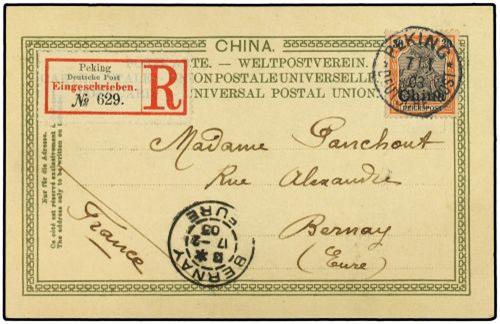 CHINA.
TE. — WELTPOSTVEREIN.
UNION POSTALE UNIVERSELLE
VERSAL POSTAL UNION.
Peking
Deutsche Post
Eingeschrieben.
№ 629.
R
PEKING
7/1
03
China
Nur für die Adresse.
Ce côté est réservé exclusivement à
The address only to be written on
Madame Panchout
Rue Alexandre
Bernay
(Eure)
France
BERNAY
EURE
17 -2
03